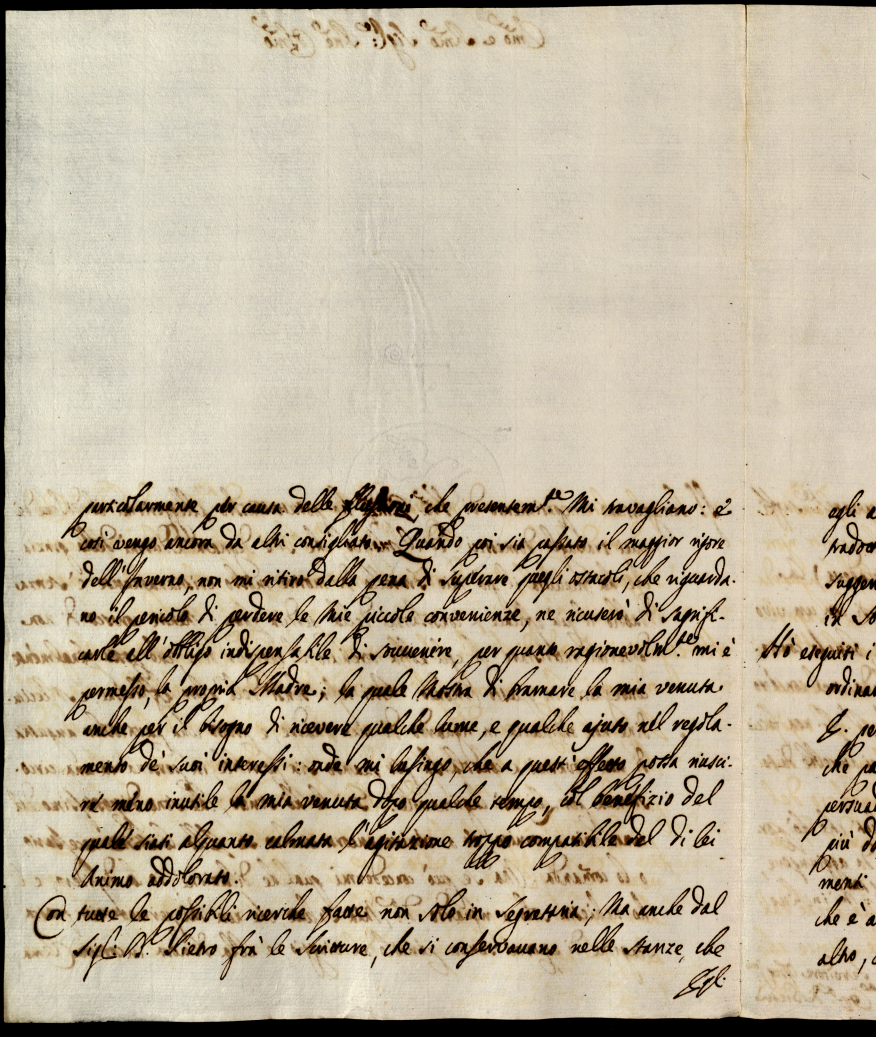 particolarmente per causa delle flussioni che presentem.te Mi travagliano: e
così vengo ancora da altri consigliato. Quando poi sia passato il maggior rigore
dell'Inverno, non mi ritiro dalla pena di superare quegli ostacoli, che riguarda-
no il pericolo di perdere le mie piccole convenienze, ne ricuserò di sagrifi-
carle all'obligo indispensabile di sovvenire, per quanto ragionevolm.te mi è
permesso, la propria Madre; la quale Mostra di bramare la mia venuta
anche per il bisogno di ricevere qualche lume, e qualche ajuto nel regola-
mento de' suoi interessi: onde mi lusingo, che a quest'effetto possa riusci-
re meno inutile la mia venuta dopo qualche tempo, col benefizio del
quale siasi alquanto calmata l'agitazione troppo compatibile del di lei
Animo addolorato.
Con tutte le possibili ricerche fatte non solo in Segretaria; Ma anche dal
Sig.r D. Pietro frà le Scritture, che si conservavano nelle Stanze, che
Egl
egli a
Hò eseguiti i
ordina
che pa
persuad
più d
menti
che è a
altro,